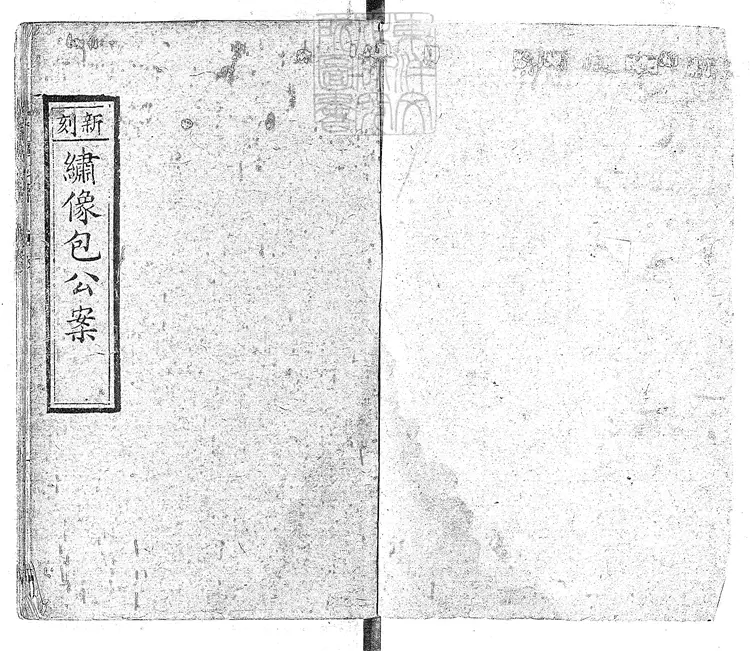 新刻
繡像包公案